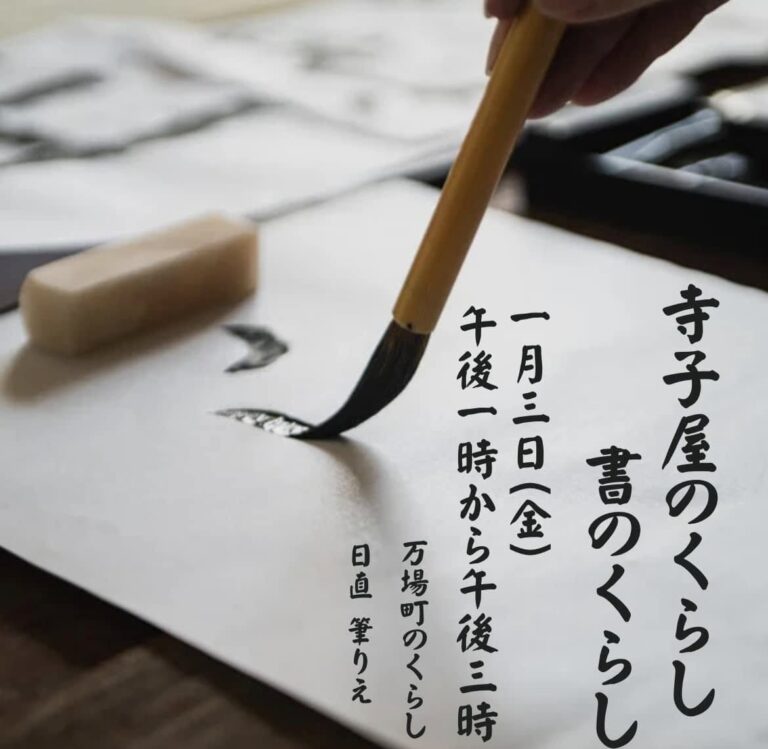 寺子屋のくらし
書のくらし
一月三日(金)
午後一時から午後三時
万場町のくらし
日直 筆りえ